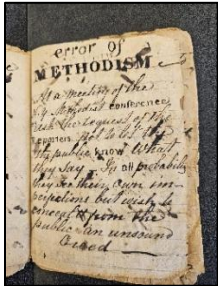 error of
METHODISM
At a meeting of the
Methodist conference,
ask the request of the
reporters Not to let the
the public know What
they say. In all probability
they see their own im-
perfections but wish to
conceal & from the
public an unsound
Creed